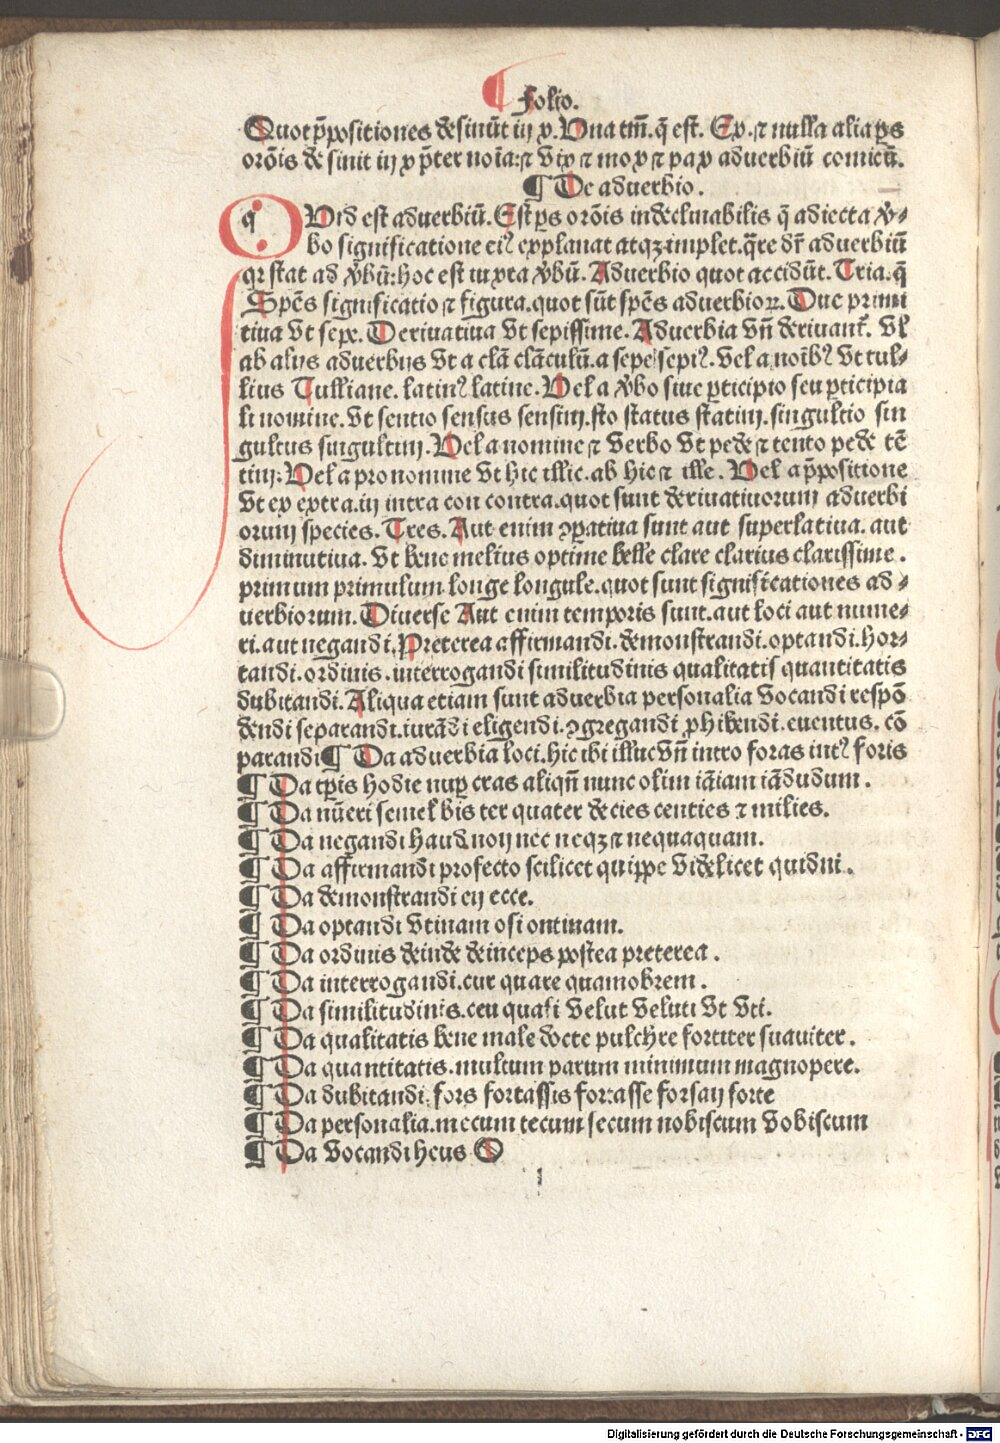 ¶ Folio.
Quot p̄positiones desinūt in x. Vna tm̄. q̄ est. Ex. ⁊ nulla alia ꝑs
orōis desinit in x p̄ter noīa: ⁊ vix ⁊ mox ⁊ pax aduerbiū comicū.
¶ De aduerbio.
QVid est aduerbiū. Est ꝑs orōis indeclinabilis q̄ adiecta v̄-
bo significatione eiꝰ explanat atqꝫ implet. q̄re dr̄ aduerbiū
qr stat ad v̄bū: hoc est iuxta v̄bū. Aduerbio quot accidūt. Tria. q̄
Spēs significatio ⁊ figura. quot sūt spēs aduerbioꝝ. Due primi
tiua vt sepe. Deriuatiua vt sepissime. Aduerbia vn̄ deriuant᷑. Vl̓
ab alijs aduerbijs vt a clā clāculū. a sepe sepiꝰ. Vel a noībꝰ vt tul-
lius Tulliane. latinꝰ latine. Vel a v̄bo siue ꝑticipio seu ꝑticipia
li nomine. vt sentio sensus sensim. sto status statim. singultio sin
gultus singultim. Vel a nomine ⁊ verbo vt pede ⁊ tento pede tē
tim: Vel a pronomine vt hic illic. ab hic ⁊ ille. Vel a p̄positione
vt ex extra. in intra con contra. quot sunt deriuatiuorum aduerbi
orum species. Tres. Aut enim ꝯꝑatiua sunt aut superlatiua. aut
diminutiua. vt bene melius optime belle clare clarius clarissime.
primum primulum longe longule. quot sunt significationes ad-
uerbiorum. Diuerse Aut enim temporis sunt. aut loci aut nume-
ri. aut negandi. Preterea affirmandi. demonstrandi. optandi. hor-
tandi. ordinis. interrogandi similitudinis qualitatis quantitatis
dubitandi. Aliqua etiam sunt aduerbia personalia vocandi respō
dendi separandi. iurādi eligendi. ꝯgregandi ꝓhibendi. euentus. cō
parandi ¶ Da aduerbia loci. hic ibi illuc vn̄ intro foras intꝰ foris
¶ Da tꝑis hodie nuꝑ cras aliqn̄ nunc olim iā iam iādudum.
¶ Da nūeri semel bis ter quater decies centies ⁊ milies.
¶ Da negandi haud non nec neqꝫ ⁊ nequaquam.
¶ Da affirmandi profecto scilicet quippe videlicet quidni.
¶ Da demonstrandi en ecce.
¶ Da optandi vtinam osi ontinam.
¶ Da ordinis deinde deinceps postea preterea.
¶ Da interrogandi. cur quare quamobrem.
¶ Da similitudinis. ceu quasi velut veluti vt vti.
¶ Da qualitatis bene male docte pulchre fortiter suauiter.
¶ Da quantitatis. multum parum minimum magnopere.
¶ Da dubitandi. fors fortassis fortasse forsan forte
¶ Da personalia. mecum tecum secum nobiscum vobiscum
¶ Da vocandi heus O
Digitalisierung gefördert durch die Deutsche Forschungsgemeinschaft - DFG